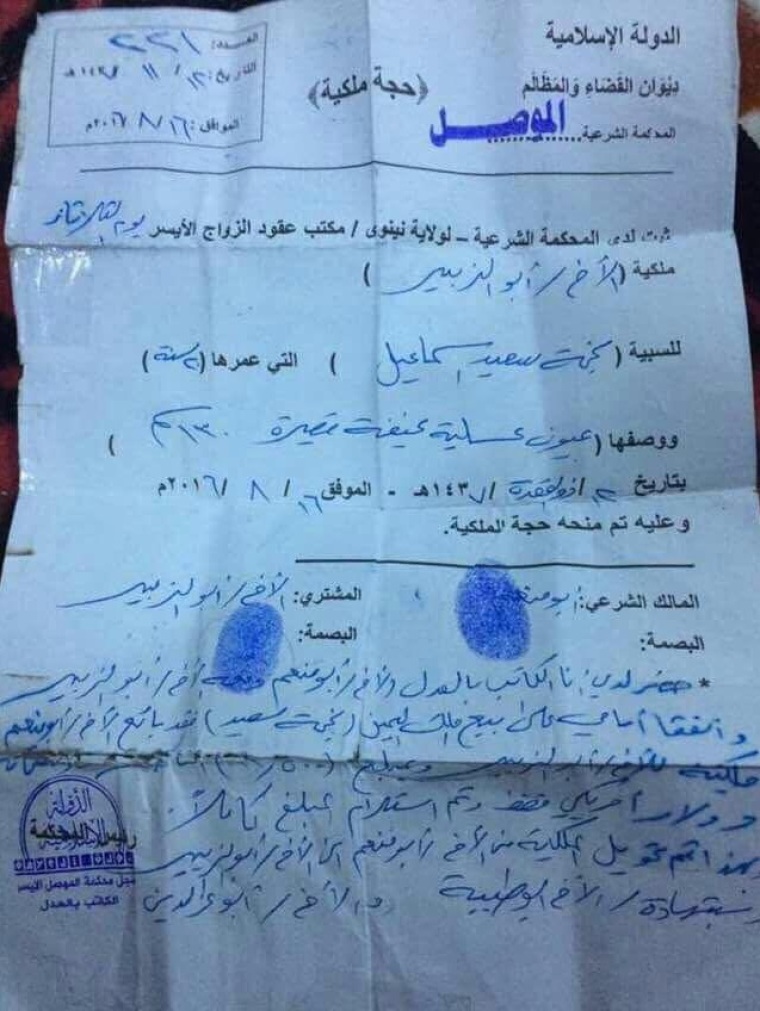 الدولة الإسلامية
ديوان القضاء والمظالم
المحكمة الشرعية الموصل
﴿حجة ملكية﴾
العدد: ٢٢١
التاريخ: ١٢/ ١١ / ١٤٣٧هـ
الموافق: ١٦ / ٨ / ٢٠١٦م
ثبت لدى المحكمة الشرعية – لولاية نينوى / مكتب عقود الزواج الأيسر يوم
ملكية (الأخ / أبو الزبير )
للسبية ( نجمة سعيد اسماعيل ) التي عمرها ( سنة)
ووصفها (عيون عسلية نحيفة قصيرة ١٣٠ سم )
بتاريخ /ذو القعدة /١٤٣٧هـ - الموفق ١٦ / ٨ /٢٠١٦م
وعليه تم منحه حجة الملكية.
المالك الشرعي: أبو منعم المشتري: الأخ / أبو الزبير
البصمة: البصمة:
* حضر لدي أنا الكاتب بالعدل الأخ / أبو منعم ومعه الأخ / أبو الزبير
واتفقا أمامي على بيع ملك اليمين (نجمة سعيد) فقد بائع الأخ / أبو منعم
ملكيته للأخ / أبو الزبير
دولار أمريكي فقط وتم استلام المبلغ كاملاً.
وبهذا تم تحويل الملكية من الأخ / أبو منعم الى الأخ / أبو الزبير
بشهادة / الأخ والأخ / أبو عز الدين
الدولة الإسلامية
رئيس المحكمة
سجل محكمة الموصل الأيسر
الكاتب بالعدل